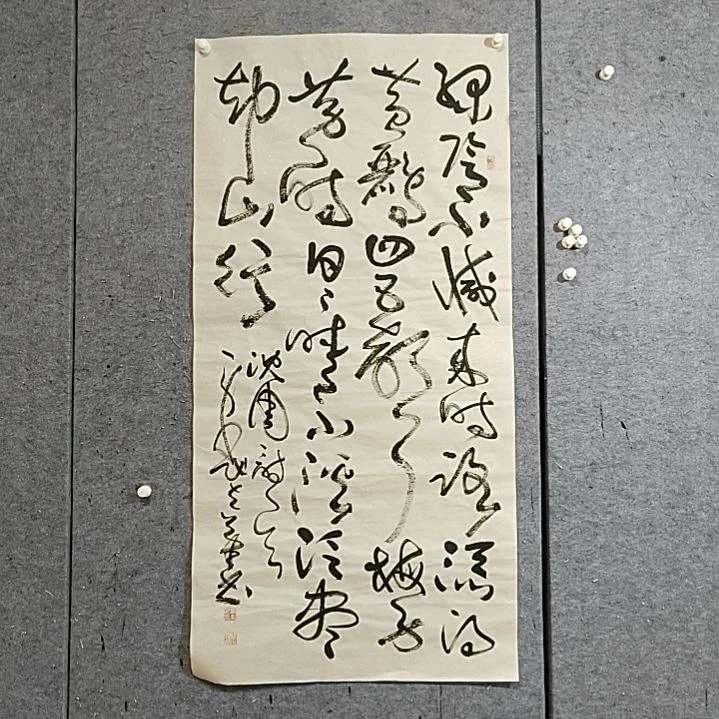 綠陰不減來時路添得
黃鸝四五聲梅子
黃時日日晴小溪泛盡
却山行
詩
書